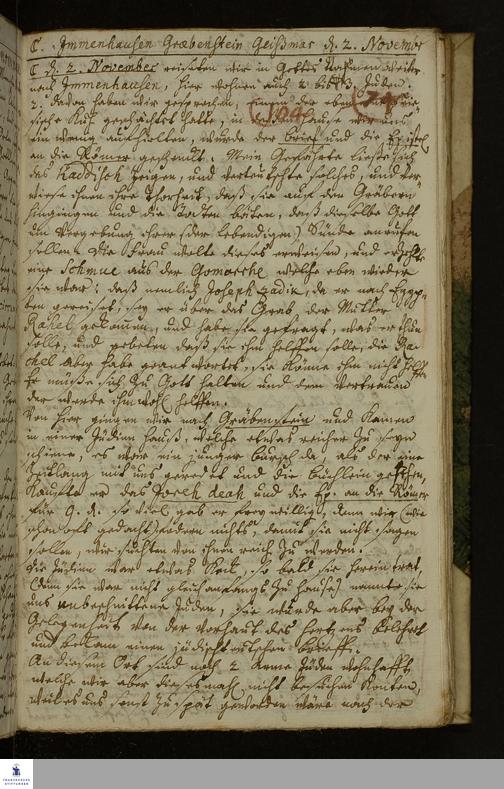 C. Immenhausen Græbenstein Geißmar d. 2. Novembr
C d. 2. November reiseten wir in Gottes Nahmen weiter
nach Immenhausen, hier wohnen auch 2 bis 3 Juden.
2. davon haben wir gesprochen,
104
24
ein wenig aufhielten, wurde der brief und die Epistel
an die Römer geschenkt. Mein Gefährte ließ sich
das Kaddisch zeigen, und verteutschte solches, und
wiese ihnen ihre Thorheit, daß sie auf den Gräbern
hingingen und die Todten bäten, daß dieselbe Gott
um Vergebung ihrer (der lebendigen) Sünde anrufen
sollen. Die Frau wolte dieses erweisen, und erzehlte
eine Schmue aus der Gomorrhe welche eben wieder
sie war: daß nemlich Joseph zadik, da er nach Egyp-
ten gereiset, sey er über das Grab der Mutter
Rahel gekommen, und habe sie gefragt, was er thun
solle, und gebeten daß sie ihm helffen solle, die Ra-
chel aber habe geantwortet, sie könne ihm nicht helffen
Er müße sich zu Gott halten und dem vertrauen
der werde ihm wohl helffen.
Von hier gingen wir nach Gräbenstein und kamen
in einer Jüdin Hauß, welche etwas reicher zu seyn
schiene, es war ein junger bursch da, als der eine
Zeitlang mit uns geredet und die büchlein gesehen,
kaufte er das Joreh deah und die Ep. an die Römer
für 9. d. so viel gab er freywillig, denn wir (wie
schon oft gedacht) fodern nichts, damit sie nicht sagen
sollen, wir suchten von ihnen reich zu werden.
Die Jüdin war etwas stolz, so bald sie herein trat,
(denn sie war nicht gleich anfangs zu Hause) nannte sie
uns unbeschnittene Juden, sie wurde aber bey der
Gelegenheit von der Vorhaut des Hertzens belehret
und bekam einen jüdischteutschen brieff.
An diesem Ort sind noch 2 Arme Juden wohnhafft,
welche wir aber dieses mahl nicht besuchen konten,
weil es uns sonst zu spät geworden wäre nach der